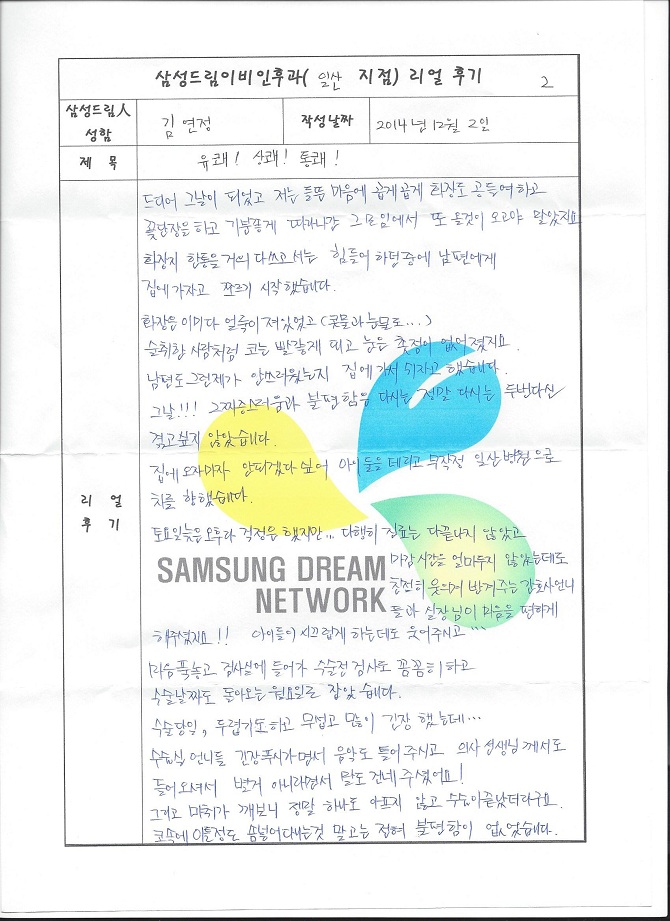 삼성드림이비인후과( 일산 지점) 리얼 후기 2
삼성드림人 성함
김연정
작성날짜
2014년 12월 2일
제 목
유쾌! 상쾌! 통쾌!
리 얼
후 기
드디어 그날이 되었고 저는 들뜬 마음에 곱게곱게 화장도 공들여 하고
꽃단장을 하고 기분좋게 따라나간 그모임에서 또 올것이 오고야 말았지요
화장지 한통을 거의 다쓰고서는 힘들어 하던중에 남편에게
집에가자고 쪼르기 시작했습니다.
화장은 이미다 얼룩이져있었고 (콧물과 눈물로...)
술취한 사람처럼 코는 빨갛게 되고 눈은 촛점이 없어졌지요.
남편도 그런제가 안쓰러웠는지 집에가서 쉬자고 했습니다.
그날!!! 그찌증스러움과 불편함은 다시는 정말 다시는 두번다신
겪고싶지 않았습니다.
집에 오자마자 안되겠다 싶어 아이들을 데리고 무작정 일산병원으로
차를 향했습니다.
토요일늦은오후라 걱정은 했지만.. 다행히 진료는 다끝나지 않았고
마감시간을 얼마두지 않았는데도
SAMSUNG DREAM
NETWORK
친절히 웃으며 반겨주는 간호사언니
들과 실장님이 마음을 편하게
해주셨지요!! 아이들이 시끄럽게 하는데도 웃어주시고...
마음푹놓고 검사실에 들어가 수술전 검사도 꼼꼼히 하고
수술날짜도 돌아오는 월요일로 잡았습니다.
수술당일, 두렵기도하고 무섭고 많이 긴장 했는데...
수술실 언니들 긴장푸시라면서 음악도 틀어 주시고 의사 선생님께서도
들어오셔서 별거 아니라면서 말도 건네주셨어요!
그리고 마취가 깨보니 정말 하나도 아프지 않고 수술이끝났더라구요.
코속에 이틀정도 솜넣어다니는것 말고는 전혀 불편함이 없었습니다.